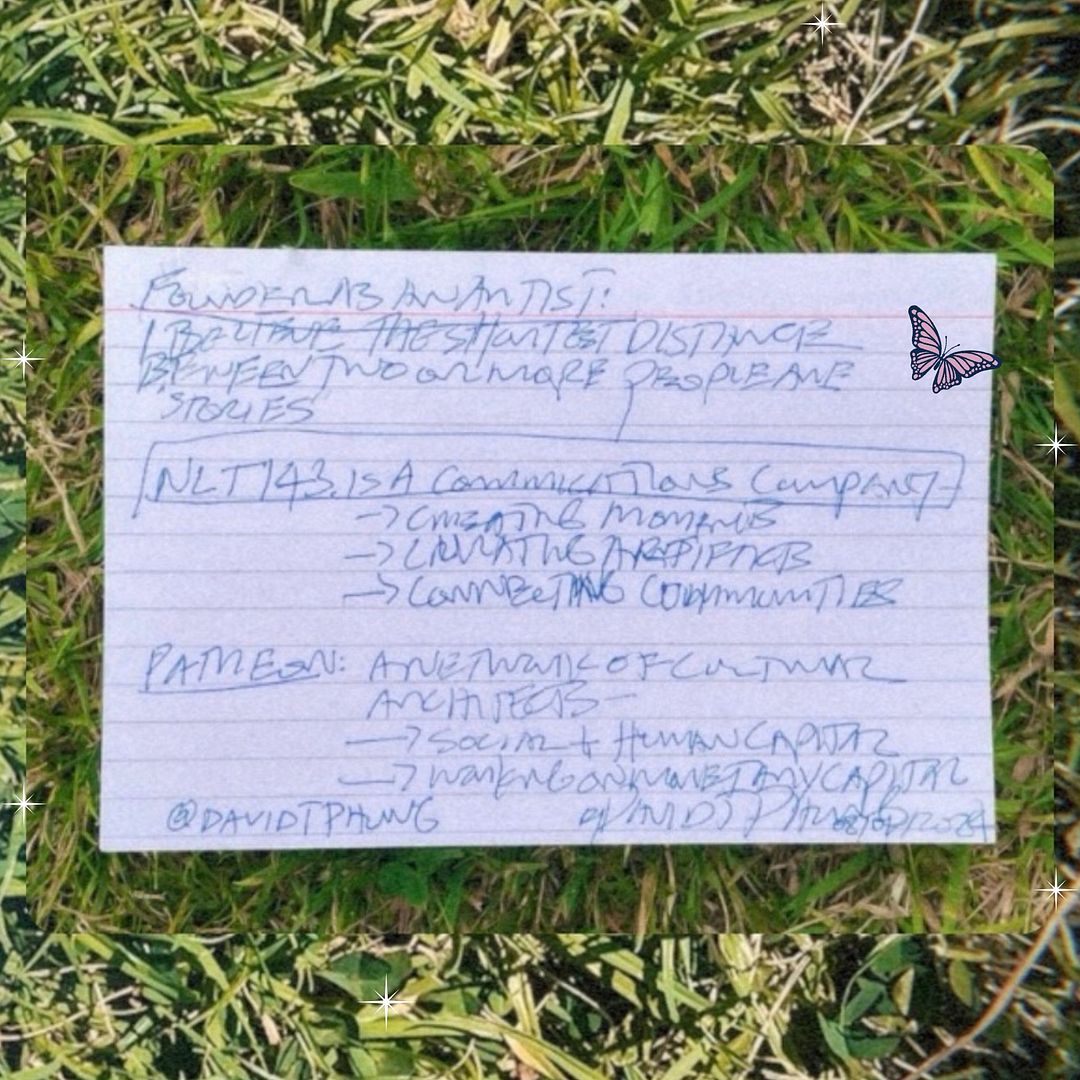 FOUNDER AS AN ARTIST:
I BELIEVE THE SHORTEST DISTANCE
BETWEEN TWO OR MORE PEOPLE ARE
STORIES
NLT143. IS A COMMUNICATIONS COMPANY
-> CREATING MOMENTS
-> CURATING ARTIFACTS
-> CONNECTING COMMUNITIES
PATREON: A NETWORK OF CULTURAL
ARCHITECTS —
—> SOCIAL + HUMAN CAPITAL
—> WORKING ON MONETARY CAPITAL
@DAVIDTPHUNG